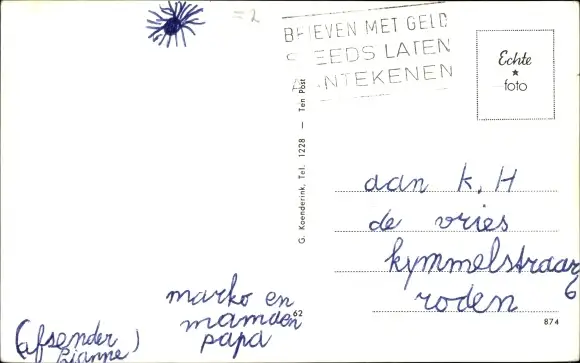 = 2
BRIEVEN MET GELD
STEEDS LATEN
AANTEKENEN
Echte
foto
G. Koenderink, Tel. 1228 — Ten Post
aan k. H
de vries
kymmelstraat
6
roden
marko en
mamden
papa
62
(afsender
Rianne)
874